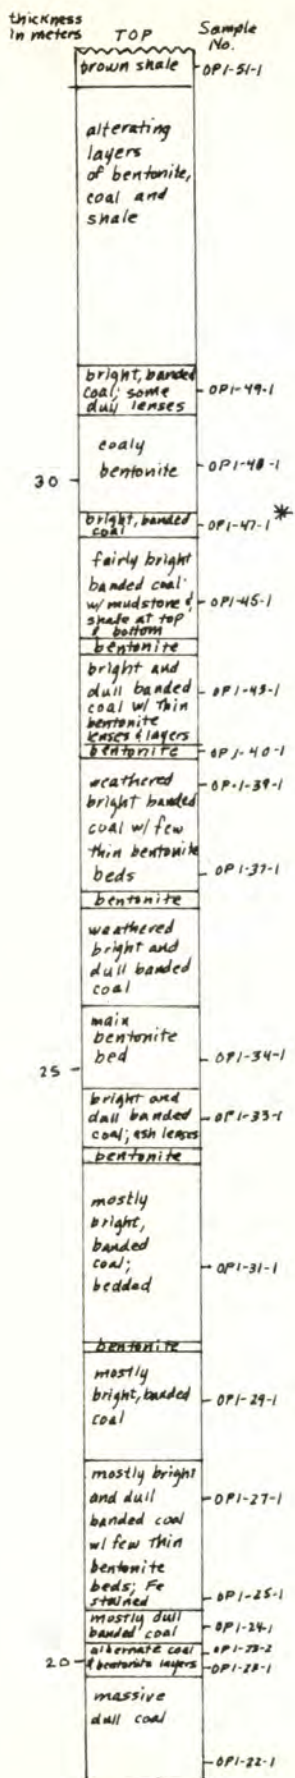 thickness
in meters
TOP
Sample
No.
brown shale
OP1-51-1
alterating
layers
of bentonite,
coal and
shale
bright, banded
coal; some
dull lenses
OP1-49-1
coaly
bentonite
OP1-48-1
30
bright, banded
coal
OP1-47-1 *
fairly bright
banded coal
w/ mudstone &
shale at top
& bottom
OP1-45-1
bentonite
bright and
dull banded
coal w/ thin
bentonite
lenses & layers
OP1-43-1
bentonite
OP1-40-1
weathered
bright banded
coal w/ few
thin bentonite
beds
OP-1-39-1
OP1-37-1
bentonite
weathered
bright and
dull banded
coal
main
bentonite
bed
OP1-34-1
25
bright and
dull banded
coal; ash lenses
OP1-33-1
bentonite
mostly
bright,
banded
coal;
bedded
OP1-31-1
bentonite
mostly
bright, banded
coal
OP1-29-1
mostly bright
and dull
banded coal
w/ few thin
bentonite
beds; Fe
stained
OP1-27-1
OP1-25-1
mostly dull
banded coal
OP1-24-1
alternate coal
& bentonite layers
OP1-23-2
20
OP1-23-1
massive
dull coal
OP1-22-1